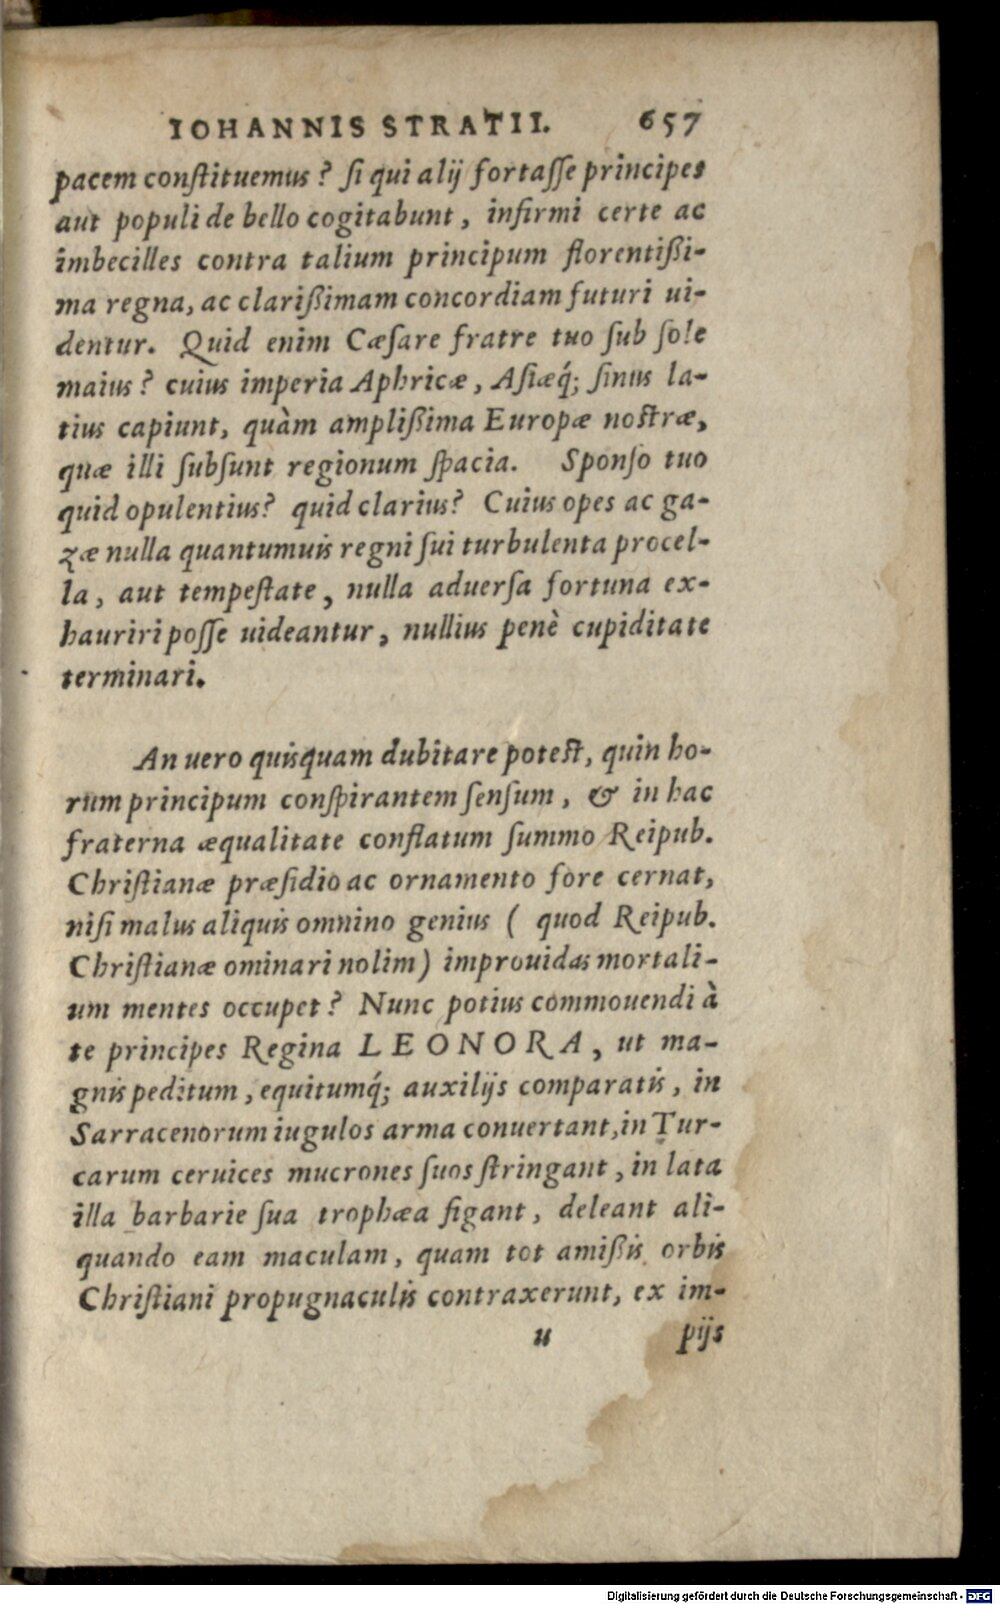 IOHANNIS STRATII. 657
pacem conſtituemus? ſi qui alij fortaſſe principes
aut populi de bello cogitabunt, infirmi certe ac
imbecilles contra talium principum florentißi-
ma regna, ac clarißimam concordiam futuri ui-
dentur. Quid enim Cæſare fratre tuo ſub ſole
maius? cuius imperia Aphricæ, Aſiæq́; ſinus la-
tius capiunt, quàm amplißima Europæ noſtræ,
quæ illi ſubſunt regionum ſpacia. Sponſo tuo
quid opulentius? quid clarius? Cuius opes ac ga-
zæ nulla quantumuis regni ſui turbulenta procel-
la, aut tempeſtate, nulla aduerſa fortuna ex-
hauriri poſſe uideantur, nullius penè cupiditate
terminari.
An uero quisquam dubitare poteſt, quin ho-
rum principum conſpirantem ſenſum, & in hac
fraterna æqualitate conflatum ſummo Reipub.
Chriſtianæ præſidio ac ornamento fore cernat,
niſi malus aliquis omnino genius ( quod Reipub.
Chriſtianæ ominari nolim) improuidas mortali-
um mentes occupet? Nunc potius commouendi à
te principes Regina LEONORA, ut ma-
gnis peditum, equitumq́; auxilijs comparatis, in
Sarracenorum iugulos arma conuertant, in Tur-
carum ceruices mucrones ſuos ſtringant, in lata
illa barbarie ſua trophæa figant, deleant ali-
quando eam maculam, quam tot amißis orbis
Chriſtiani propugnaculis contraxerunt, ex im-
u pijs
Digitalisierung gefördert durch die Deutsche Forschungsgemeinschaft - DFG